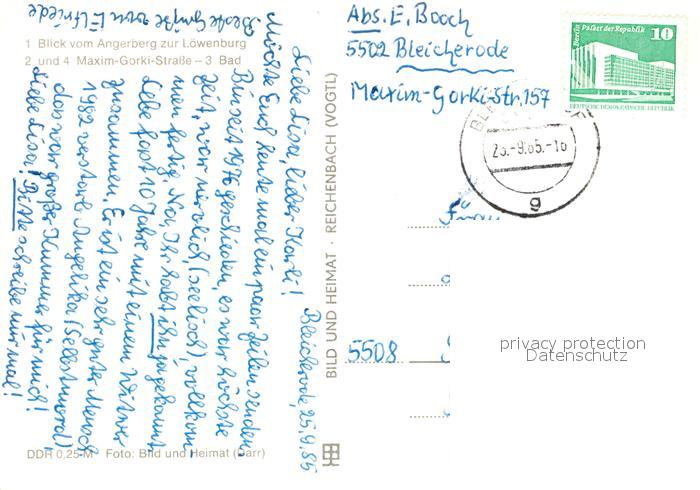 1 Blick vom Angerberg zur Löwenburg
2 und 4 Maxim-Gorki-Straße – 3 Bad
Bleicherode, 25.9.85
Liebe Lisa, lieber Karli!
Möchte Euch heute mal ein paar Zeilen senden.
Bin seit 1976 geschieden, es war höchste
Zeit, war nervlich (seelisch) vollkom-
men fertig. Na, Ihr habt ihn ja gekannt.
Lebe fast 10 Jahre mit einem Witwer
zusammen. Er ist ein sehr guter Mensch.
1982 verstarb Angelika (Selbstmord),
das war großer Kummer für mich!
Liebe Lisa! Bitte schreibe mir mal!
Beste Grüße von Elfriede
DDR 0,25 M Foto: Bild und Heimat (Darr)
BILD UND HEIMAT · REICHENBACH (VOGTL)
Abs. E. Booch
5502 Bleicherode
Maxim-Gorki-Str. 157
Berlin Palast der Republik
10
DEUTSCHE DEMOKRATISCHE REPUBLIK
25.-9.85.-16
g
5508
privacy protection
Datenschutz